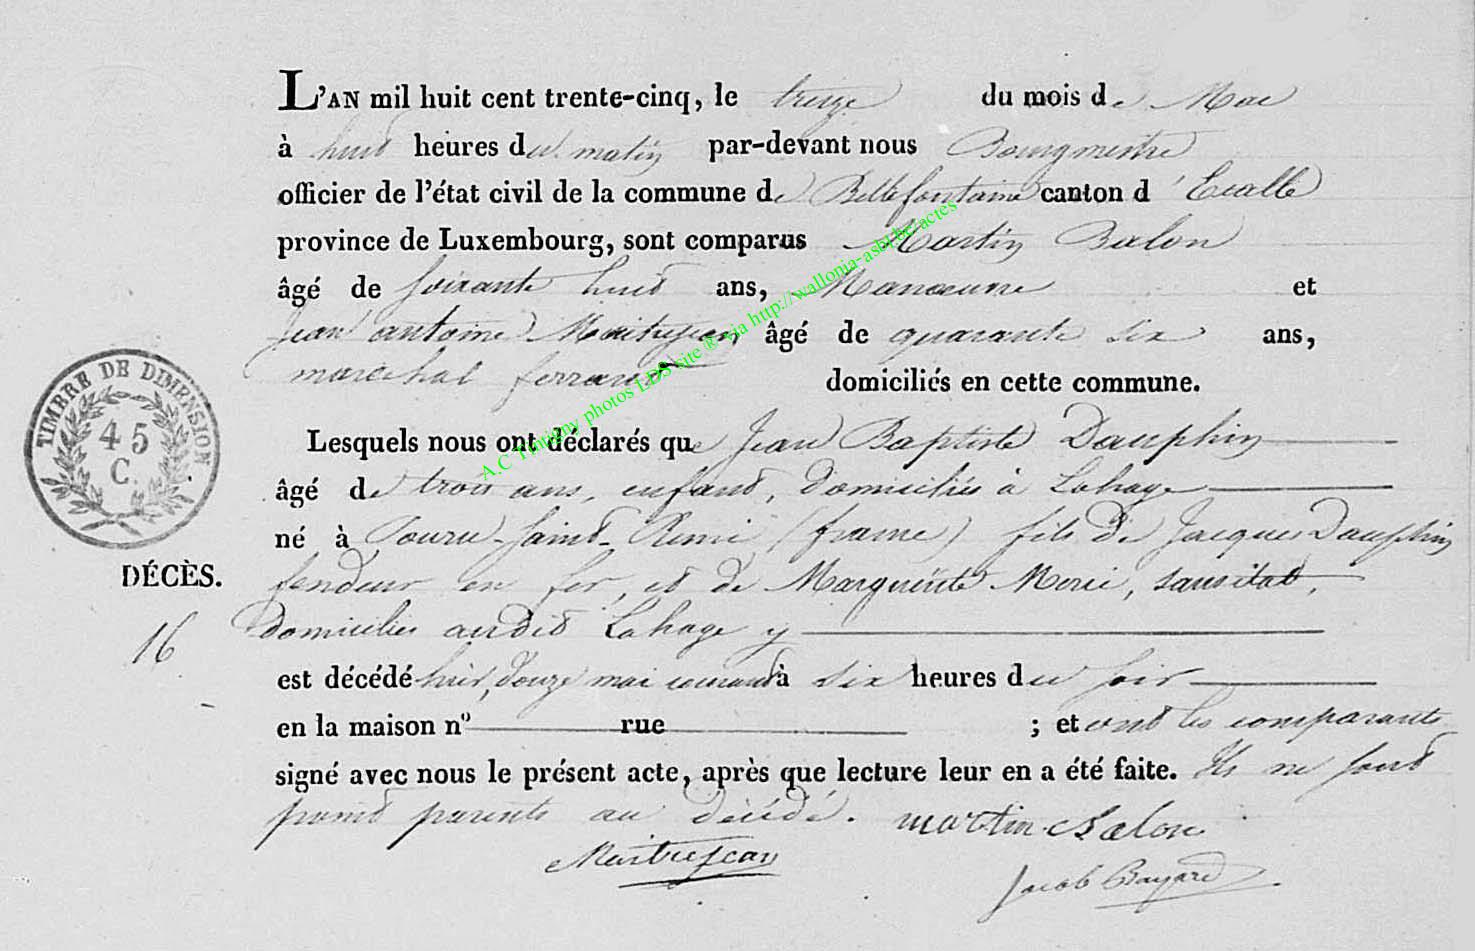 L'AN mil huit cent trente-cinq, le treize du mois de Mai
à huit heures du matin par-devant nous Bourgmestre
officier de l'état civil de la commune de Bellefontaine canton d'Etalle
province de Luxembourg, sont comparus Martin Balon
âgé de soixante huit ans, Manoeuvre et
Jean antoine Maitrejean, âgé de quarante six ans,
maréchal ferrant domiciliés en cette commune.
Lesquels nous ont déclarés que Jean Baptiste Dauphin
âgé de trois ans, enfant, domiciliés à Lahage
né à Pouru-Saint-Remi (france) fils de Jacques Dauphin
fendeur en fer, et de Marguerite Merie, sans état,
domiciliés audit Lahage y
est décédé hier, douze mai courant à six heures du soir
en la maison nº rue ; et ont les comparants
signé avec nous le présent acte, après que lecture leur en a été faite. Ils ne sont
point parents au décédé. martin Balon
Maitrejean
Jacob Bayard
TIMBRE DE DIMENSION
45
C.
DÉCÈS.
16
A.C Tintigny photos LDS site ® via http://wallonia-asbl.be/actes